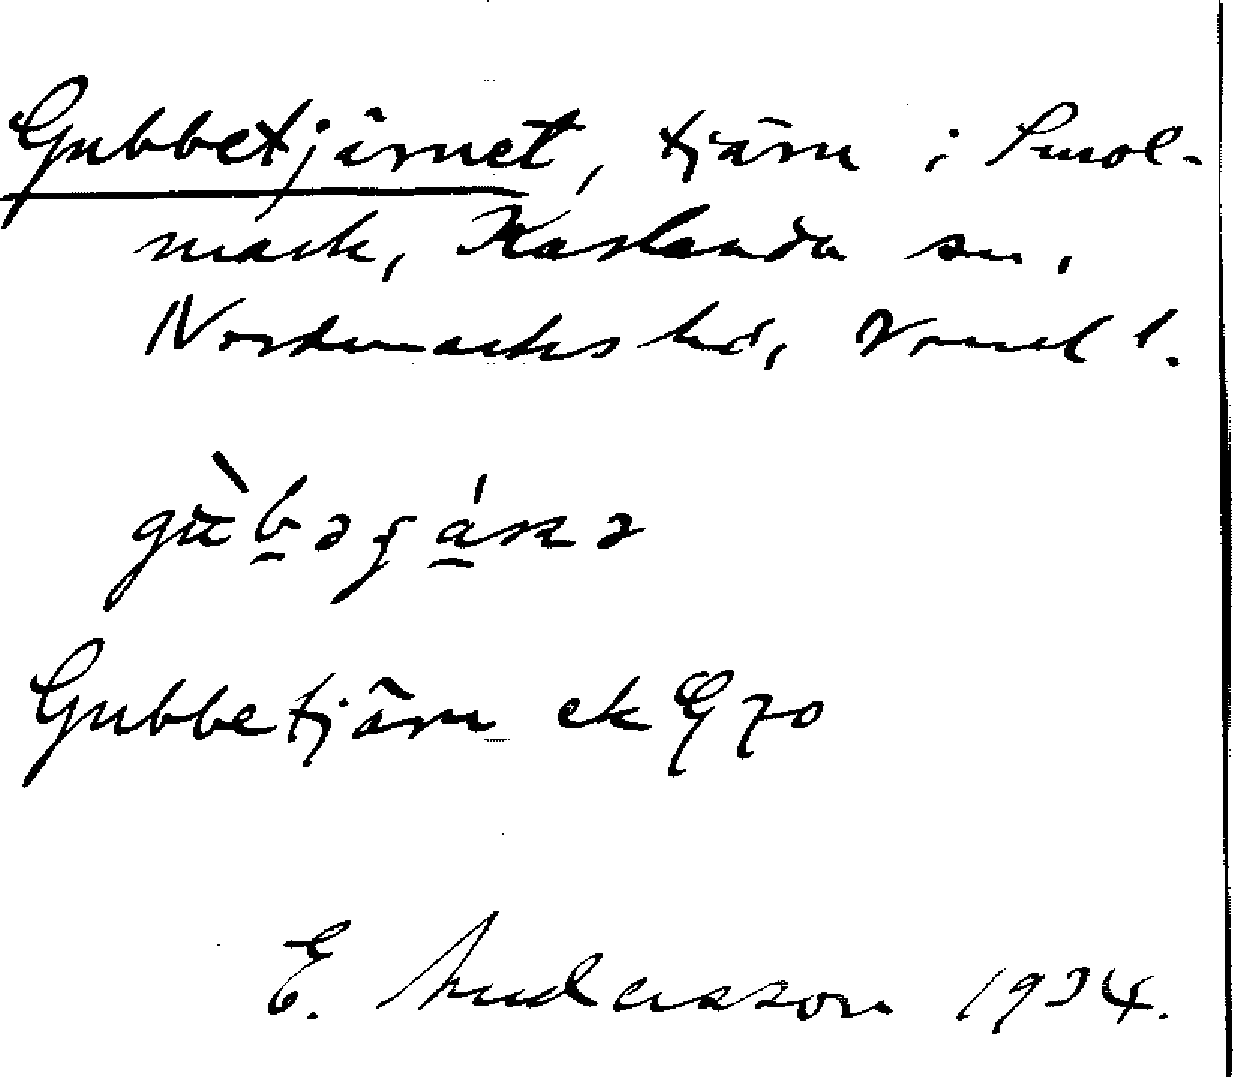 Gubbetjärnet, tjärn i Smol-
mark, Karlanda sn,
Nordmarks hd, Vrml l.
gùb̲əʃa̲ṇə
Gubbetjärn ek E 70
E. Andersson 1934.